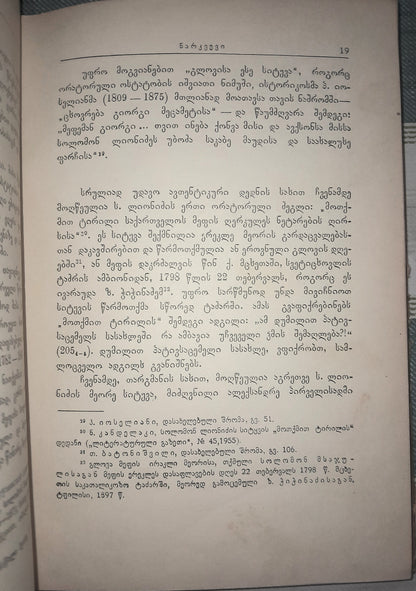 ნარკვევი 19
უფრო მოგვიანებით „გლოვისა ესე სიტყვა“, როგორც
ორატორული ოსტატობის იშვიათი ნიმუში, ისტორიკოსმა პ. იო-
სელიანმა (1809 — 1875) მთლიანად მოათავსა თავის ნაშრომში—
„ცხოვრება გიორგი მეცამეტისა“ — და წაუმძღვარა შემდეგი:
„მეფემან გიორგი... თვით ინება ქონვა მისი და აუქსონსა მისსა
სოლომონ ლიონიძეს უბოძა საკაბე მაუდისა და საახალუხე
ფარჩისა“¹⁹.
სრულიად უდავო ავთენტიკური დედნის სახით ჩვენამდე
მოღწეულია ს. ლიონიძის ერთი ორატორული ძეგლი: „მოთქ-
მით ტირილი საქართველოს მეფის ღერკულეს ნეტარების ღირ-
სისა“²⁰. ეს სიტყვა შექმნილია ერეკლე მეორის გარდაცვალებას-
თან დაკავშირებით და წარმოთქმულია ან ეროვნული გლოვის დღე-
ებში²¹, ან მეფის დაკრძალვის წინ ქ. მცხეთაში, სვეტიცხოვლის
ტაძრის ამბიონიდან, 1798 წლის 22 თებერვალს, როგორც ეს
ივარაუდა ზ. ჭიჭინაძემ²². უფრო სარწმუნოდ უნდა მივიჩნიოთ
სიტყვის წარმოთქმა სწორედ ტაძარში. ამას გვაფიქრებინებს
„მოთქმით ტირილის“ შემდეგი ადგილი: „ამ დუმილით პატივ-
საცემელს სასახლეში რა ამბავია უჩვეველი ემის შემაღლება?!“
(205₄₋₆). დუმილით პატივსაცემელი სასახლე, ვფიქრობთ, სამ-
ლოცველო ადგილს გვანიშნებს.
ჩვენამდე, თარგმანის სახით, მოღწეულია აგრეთვე ს. ლიო-
ნიძის მეორე სიტყვა, მიძღვნილი ალექსანდრე პირველისადმი
¹⁹ პ. იოსელიანი, დასახელებული შრომა, გვ. 51.
²⁰ ნ. კანდელაკი, სოლომონ ლიონიძის სიტყვის „მოთქმით ტირილის“
დედანი („ლიტერატურული გაზეთი“, № 45,1955).
²¹ თ. ბატონიშვილი, დასახელებული შრომა, გვ. 106.
²² გლოვა მეფის ირაკლი მეორისა, თქმული სოლომონ მსაჯუ-
ლისაგან მეფის ერეკლეს დასაფლავების დღეს 22 თებერვალს 1798 წ. მცხე-
თის საკათალიკოზო ტაძარში, მეორედ გამოცემული ზ. ჭიჭინაძისაგან,
ტფილისი, 1897 წ.